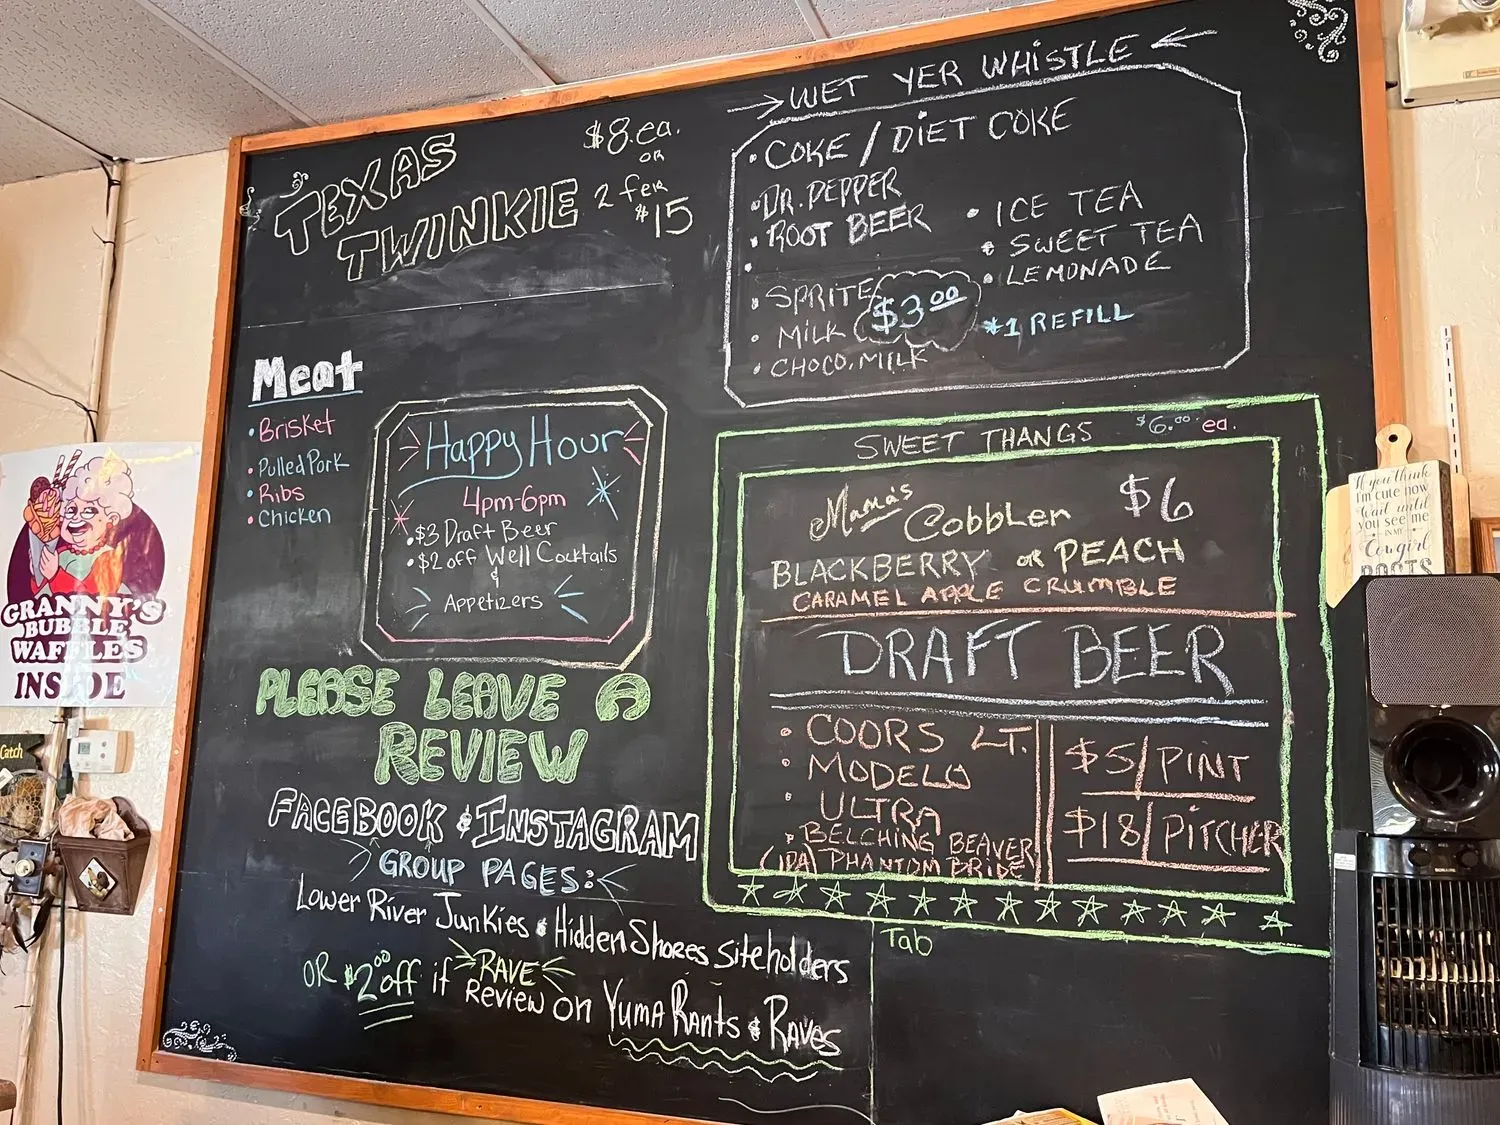 TEXAS
TWINKIE
$8.ea.
OR
2 fer
$15
→ WET YER WHISTLE ←
• COKE / DIET COKE
• DR. PEPPER
• ROOT BEER
•
• SPRITE
• MILK
• CHOCO. MILK
$3.00
• ICE TEA
• SWEET TEA
• LEMONADE
*1 REFILL
Meat
• Brisket
• Pulled Pork
• Ribs
• Chicken
Happy Hour
4pm-6pm
• $3 Draft Beer
• $2 off Well Cocktails
&
Appetizers
SWEET THANGS $6.00 ea.
Mama's Cobbler $6
BLACKBERRY OR PEACH
CARAMEL APPLE CRUMBLE
DRAFT BEER
• COORS LT.
• MODELO
• ULTRA
• BELCHING BEAVER
(IPA) PHANTOM BRIDE
$5/PINT
$18/PITCHER
Tab
PLEASE LEAVE A
REVIEW
FACEBOOK & INSTAGRAM
GROUP PAGES:
Lower River Junkies & Hidden Shores Siteholders
OR $2.00 off if RAVE
Review on Yuma Rants & Raves
GRANNY'S
BUBBLE
WAFFLES
INSIDE
Catch
If you think
I'm cute now
Wait until
you see me
IN MY
Cowgirl
BOOTS